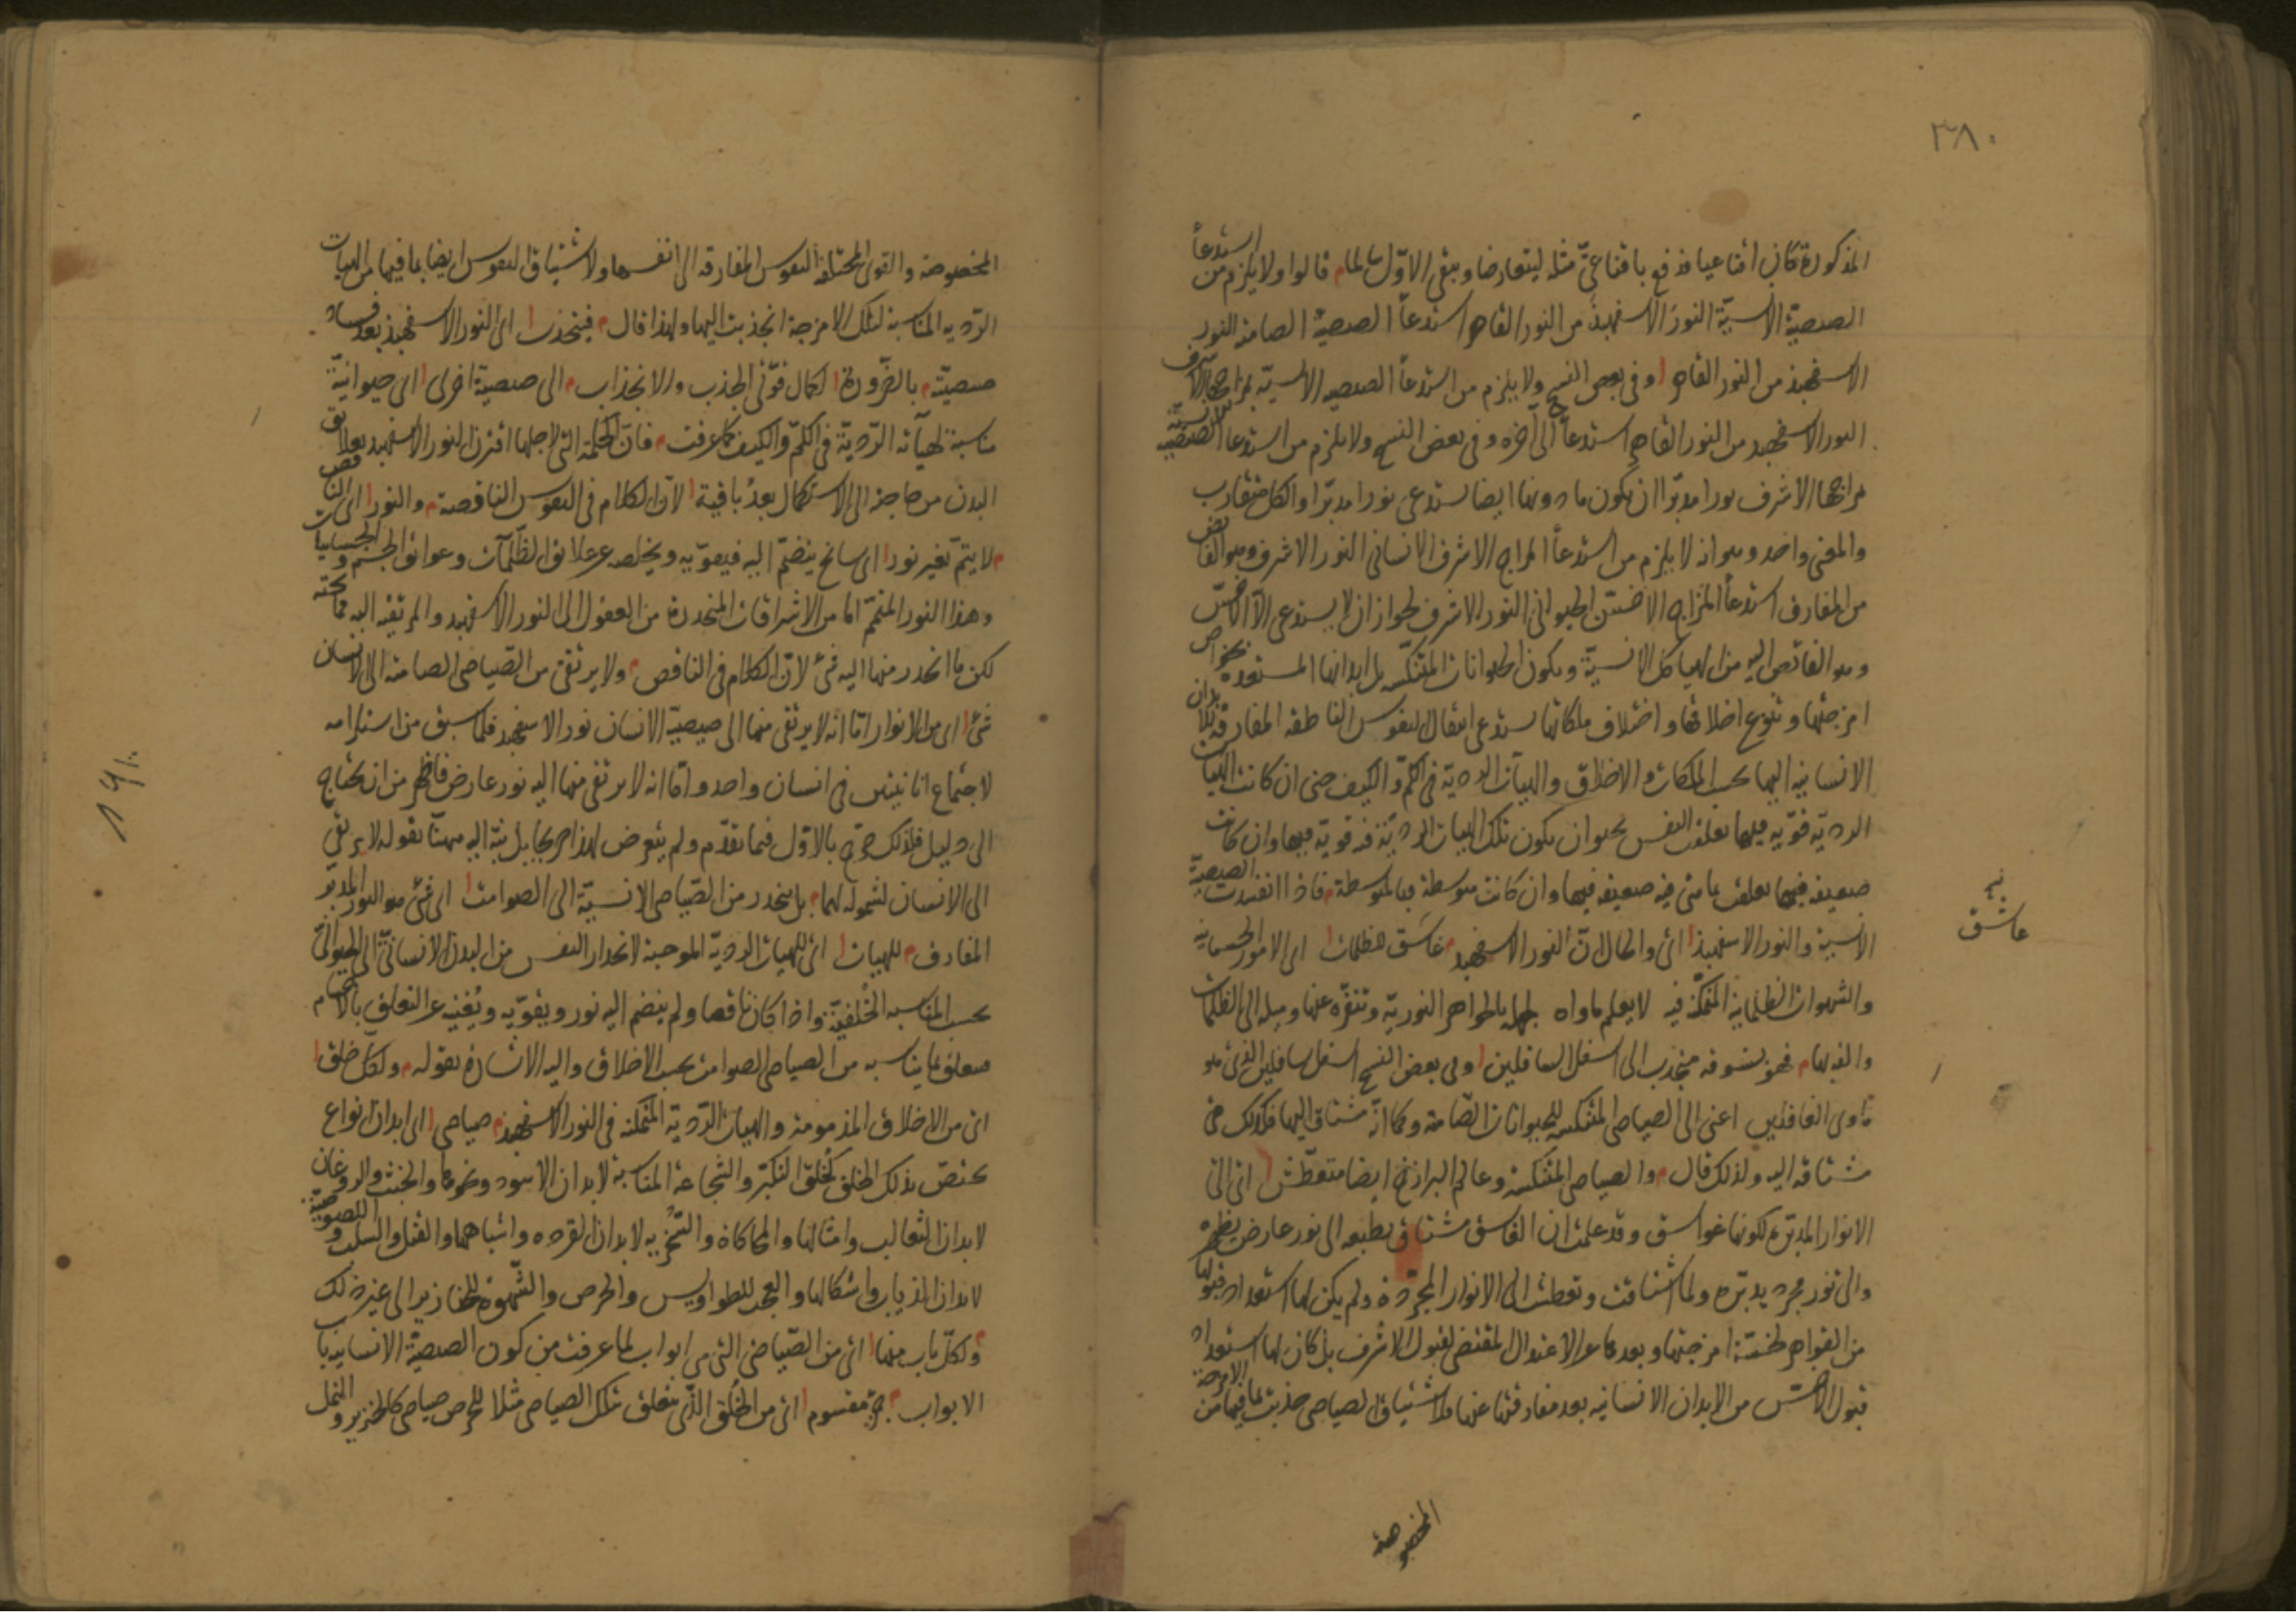 ٣٨٠
المذكورة كان اقناعيا فدفع باقناعى مثله ليتعارضا ويبقى الاول سالما م قالوا ولا يلزم من استدعأ
الصيصية الانسية النور الاسفهبذ من النور القاهر استدعأ الصيصية الصامتة النور
الاسفهبذ من النور القاهر ا وفى بعض النسخ ولا يلزم من استدعأ الصيصيه الانسية بمزاجها الاشرف
النور الاسفهبد من النور القاهر استدعأ الى آخره وفى بعض النسخ ولا يلزم من استدعا الصيصية الانسية
بمزاجها الاشرف نورا مدبرا ان يكون ما دونها ايضا يستدعى نورا مدبرا والكل متقارب
والمعنى واحد وهو انه لا يلزم من استدعأ المزاج الاشرف الانسانى النور الاشرف وهو الفائض
من المفارق استدعأ المزاج الاخس الحيوانى النور الاشرف لجواز ان لا يستدعى الا الاخس
وهو الفائض اليه من الهياكل الانسية ويكون الحيوانات المنتكسة بل ابدانها المستعده بخواص
امزجتها وتنوع اخلاقها واختلاف ملكاتها يستدعى انتقال النفوس الناطقه المفارقة للابدان
الانسانيه اليها بحسب الملكات والاخلاق والهيآت الرديه فى الكم والكيف حتى ان كانت الهيات
الرديه قويه فيها تعلقت النفس بحيوان يكون تلك الهيات الردية فيه قوية فيها وان كانت
ضعيفه فيها تعلقت بما هى فيه ضعيفه فيها وان كانت متوسطة فبالمتوسطة م فاذا انفسدت الصيصية
الانسية والنور الاسفهبذ ا اى والحال ان النور الاسفهبد م عاشق للظلمات ا اى الامور الجسمانيه
والشهوات الظلمانيه المتمكنة فيه لا يعلم ماواه لجهله بالجواهر النورية وتنفره عنها وميله الى الظلمات
والفه لها م فهو بشوقه منجذب الى اسفل السافلين ا وفى بعض النسخ اسفل سافلين الذى هو
ماوى الفاقدين اعنى الى الصياصى المنتكسه للحيوانات الصامتة وكما انه مشتاق اليها فكذلك هى
مشتاقه اليه ولذلك قال م والصياصى المنتكسة وعالم البرازخ ايضا متعطش ا اى الى
الانوار المدبرة لكونها غواسق وقد علمت ان الغاسق مشتاق بطبعه الى نور عارض يظهره
والى نور مجرد يدبره ولما اشتاقت وتعطشت الى الانوار المجردة ولم يكن لها استعداد قبولها
من القواهر لخسة امزجتها وبعدها عن الاعتدال المقتضى لقبول الاشرف بل كان لها استعداد
قبول الاخس من الابدان الانسانيه بعد مفارقتها عنها فلاشتياق الصياصى جذبت بما فيها من الامزجة
المخصوصة
عاشق
المخصوصة والقوى المختلفة النفوس المفارقه الى انفسها ولاشتياق النفوس ايضا بما فيها من الهيات
الرديه المناسبة لتلك الامزجة انجذبت اليها ولهذا قال م فينجذب ا اى النور الاسفهبذ بعد فساد
صيصيته م بالضرورة ا لكمال قوتى الجذب والانجذاب م الى صيصية اخرى ا اى حيوانية
مناسبة لهيآته الردية فى الكم والكيف كما عرفت م فان الحكمة التى لاجلها اقترن النور الاسفهبد بعلائق
البدن من حاجته الى الاستكمال بعد باقية ا لان الكلام فى النفوس الناقصة م والنور ا اى الناقص
م لا يتم بغير نور ا اى سانح ينضم اليه فيقويه ويخلصه عن علائق الظلمات وعوائق الجسم والجسمانيات
وهذا النور المتمم اما من الاشراقات المنحدرة من العقول الى النور الاسفهبد والمرتقيه اليه مما تحته
لكن ما انحدر منها اليه شئ لان الكلام فى الناقص م ولا يرتقى من الصياصى الصامتة الى الانسان
شئ ا اى من الانوار اما انه لا يرتقى منها الى صيصية الانسان نور الاسفهبد فلما سبق من استلزامه
لاجتماع انائيتين فى انسان واحد واما انه لا يرتقى منها اليه نور عارض فاظهر من ان يحتاج
الى دليل فلذلك صرح بالاول فيما تقدم ولم يتعرض لهذا صريحا بل نبه اليه ههنا بقوله لا يرتقى
الى الانسان لشموله لهما م بل ينحدر من الصياصى الانسية الى الصوامت ا اى شئ هو النور المدبر
المفارق م للهيات ا اى للهيات الردية الموجبة لانحدار النفس من البدن الانسانى الى الحيوانى
بحسب المناسبه الخلقية واذا كان ناقصا ولم ينضم اليه نور ويقويه ويغنيه عن التعلق بالاجسام
فيتعلق بما يناسبه من الصياصى الصوامت بحسب الاخلاق واليه الاشارة بقوله م ولكل خلق ا
اى من الاخلاق المذمومة والهيات الردية المتمكنه فى النور الاسفهبذ م صياصى ا اى ابدان انواع
يختص بذلك الخلق كخلق التكبر والشجاعة المناسبة لابدان الاسود ونحوها والخبث والروغان
لابدان الثعالب وامثالها والمحاكاة والسخريه لابدان القرده واشباهها والقتل والسلب واللصوصية
لابدان الذياب واشكالها والعجب للطواويس والحرص والشهوة للخنازير الى غير ذلك
م ولكل باب منها ا اى من الصياصى التى هى ابواب لما عرفت من كون الصيصية الانسانيه باب
الابواب م جزء مقسوم ا اى من الخلق الذى يتعلق بتلك الصياصى مثلا للحرص صياصى كالخنزير والنمل